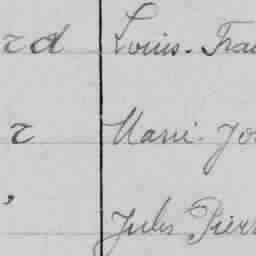 rd Louis-Fra
r Marie-Jos
Jules Pierr